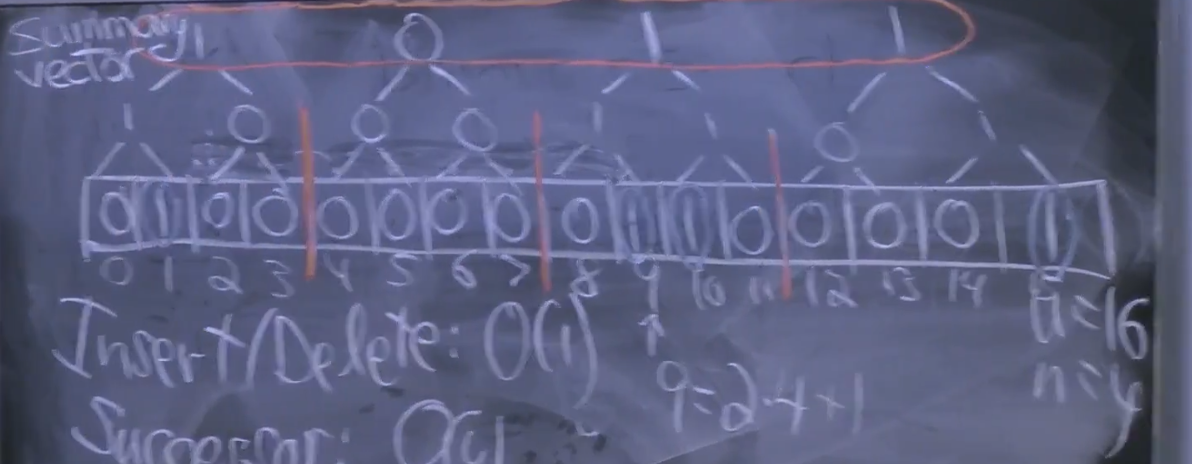 Summary 1 0 1 1
vector
1 0 0 0 1 1 0 1
0 1 0 0 0 0 0 0 0 1 1 0 0 0 0 1
0 1 2 3 4 5 6 7 8 9 10 11 12 13 14 15
Insert/Delete: O(1) u=16
9=2·4+1 n=4
Successor: